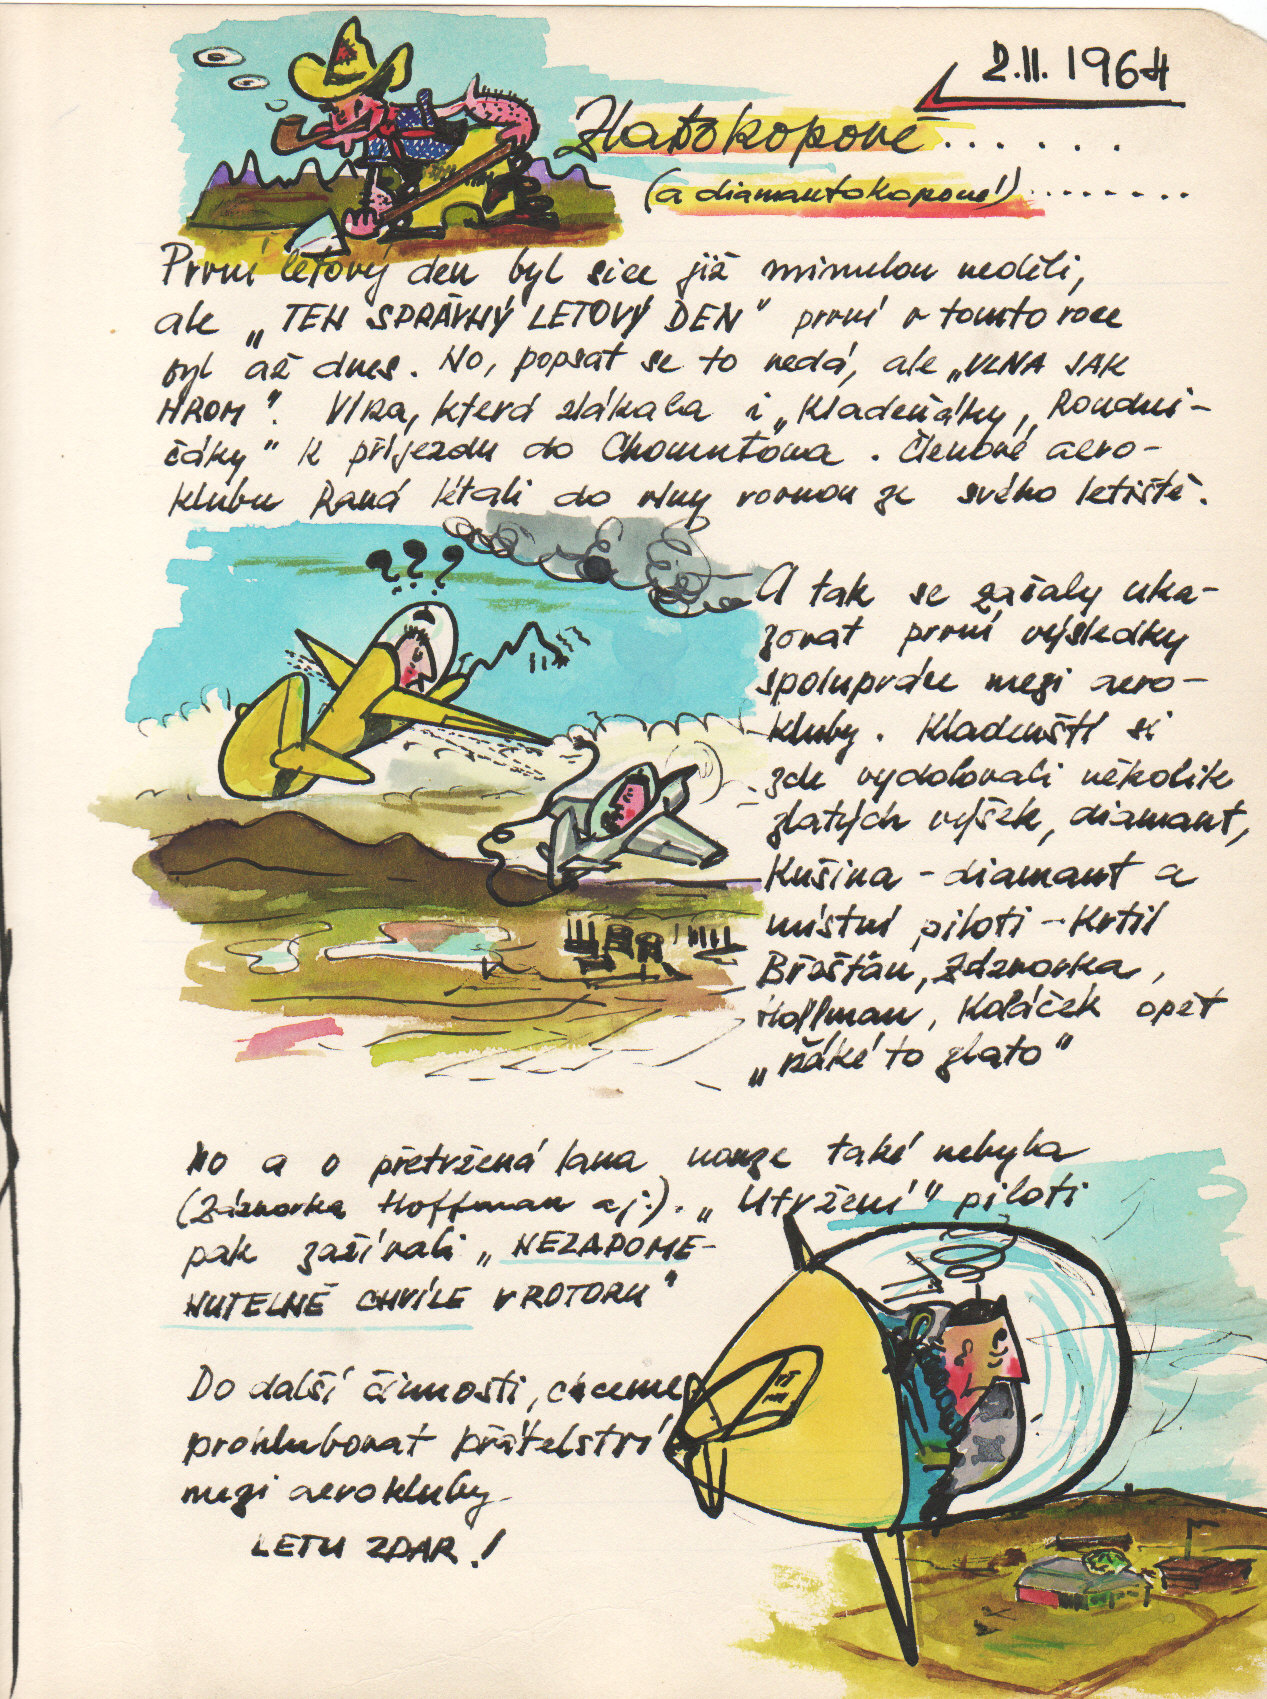 2.II. 1964
Zlatokopové......
(a diamantokopové!).......
První letový den byl sice již minulou neděli,
ale „TEN SPRÁVNÝ LETOVÝ DEN" první v tomto roce
byl až dnes. No, popsat se to nedá, ale „VLNA JAK
HROM". Vlna, která zlákala i „Kladeňáky, Roudni-
čáky" k příjezdu do Chomutova. Členové aero-
klubu Raná létali do vlny rovnou ze svého letiště.
???
A tak se začaly uka-
zovat první výsledky
spolupráce mezi aero-
kluby. Kladenští si
zde vydolovali několik
zlatých výšek, diamant,
Kušina - diamant a
místní piloti - Krtil
Břešťán, Zdznorka,
Hoffman, Koláček opět
„ňáké to zlato"
No a o přetržená lana nouze také nebyla
(Zdznorka Hoffman aj.). „Utržení" piloti
pak zažívali „NEZAPOME-
NUTELNÉ CHVÍLE V ROTORU"
Do další činnosti, chceme
prohlubovat přátelství
mezi aerokluby.
LETU ZDAR!